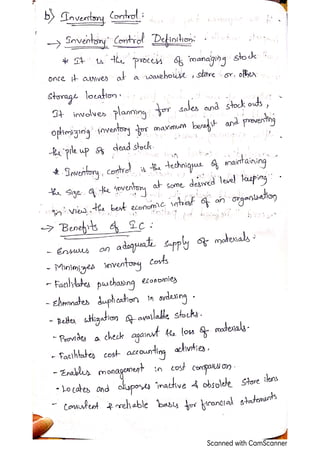 b) Inventory Control:
→ Inventory Control Definition:
* It is the process of managing stock
once it arrives at a warehouse, store or other
storage location.
It involves planning for sales and stock outs,
optimizing inventory for maximum benefit and preventing
the pile up of dead stock.
* Inventory control is the technique of maintaining
the size of the inventory at some desired level keeping
in view, the best economic intrest of an organization
→ Benefits of I C:
- Ensures an adequate supply of materials.
- Minimizes inventory costs
- Facilitates purchasing economies
- Eliminates duplication in ordering.
- Better utilization of available stocks.
- Provides a check against the loss of materials.
- Facilitates cost accounting activities.
- Enables management in cost comparison.
- Locates and disposes inactive & obsolete store items
- Consistent & reliable basis for financial statements
Scanned with CamScanner